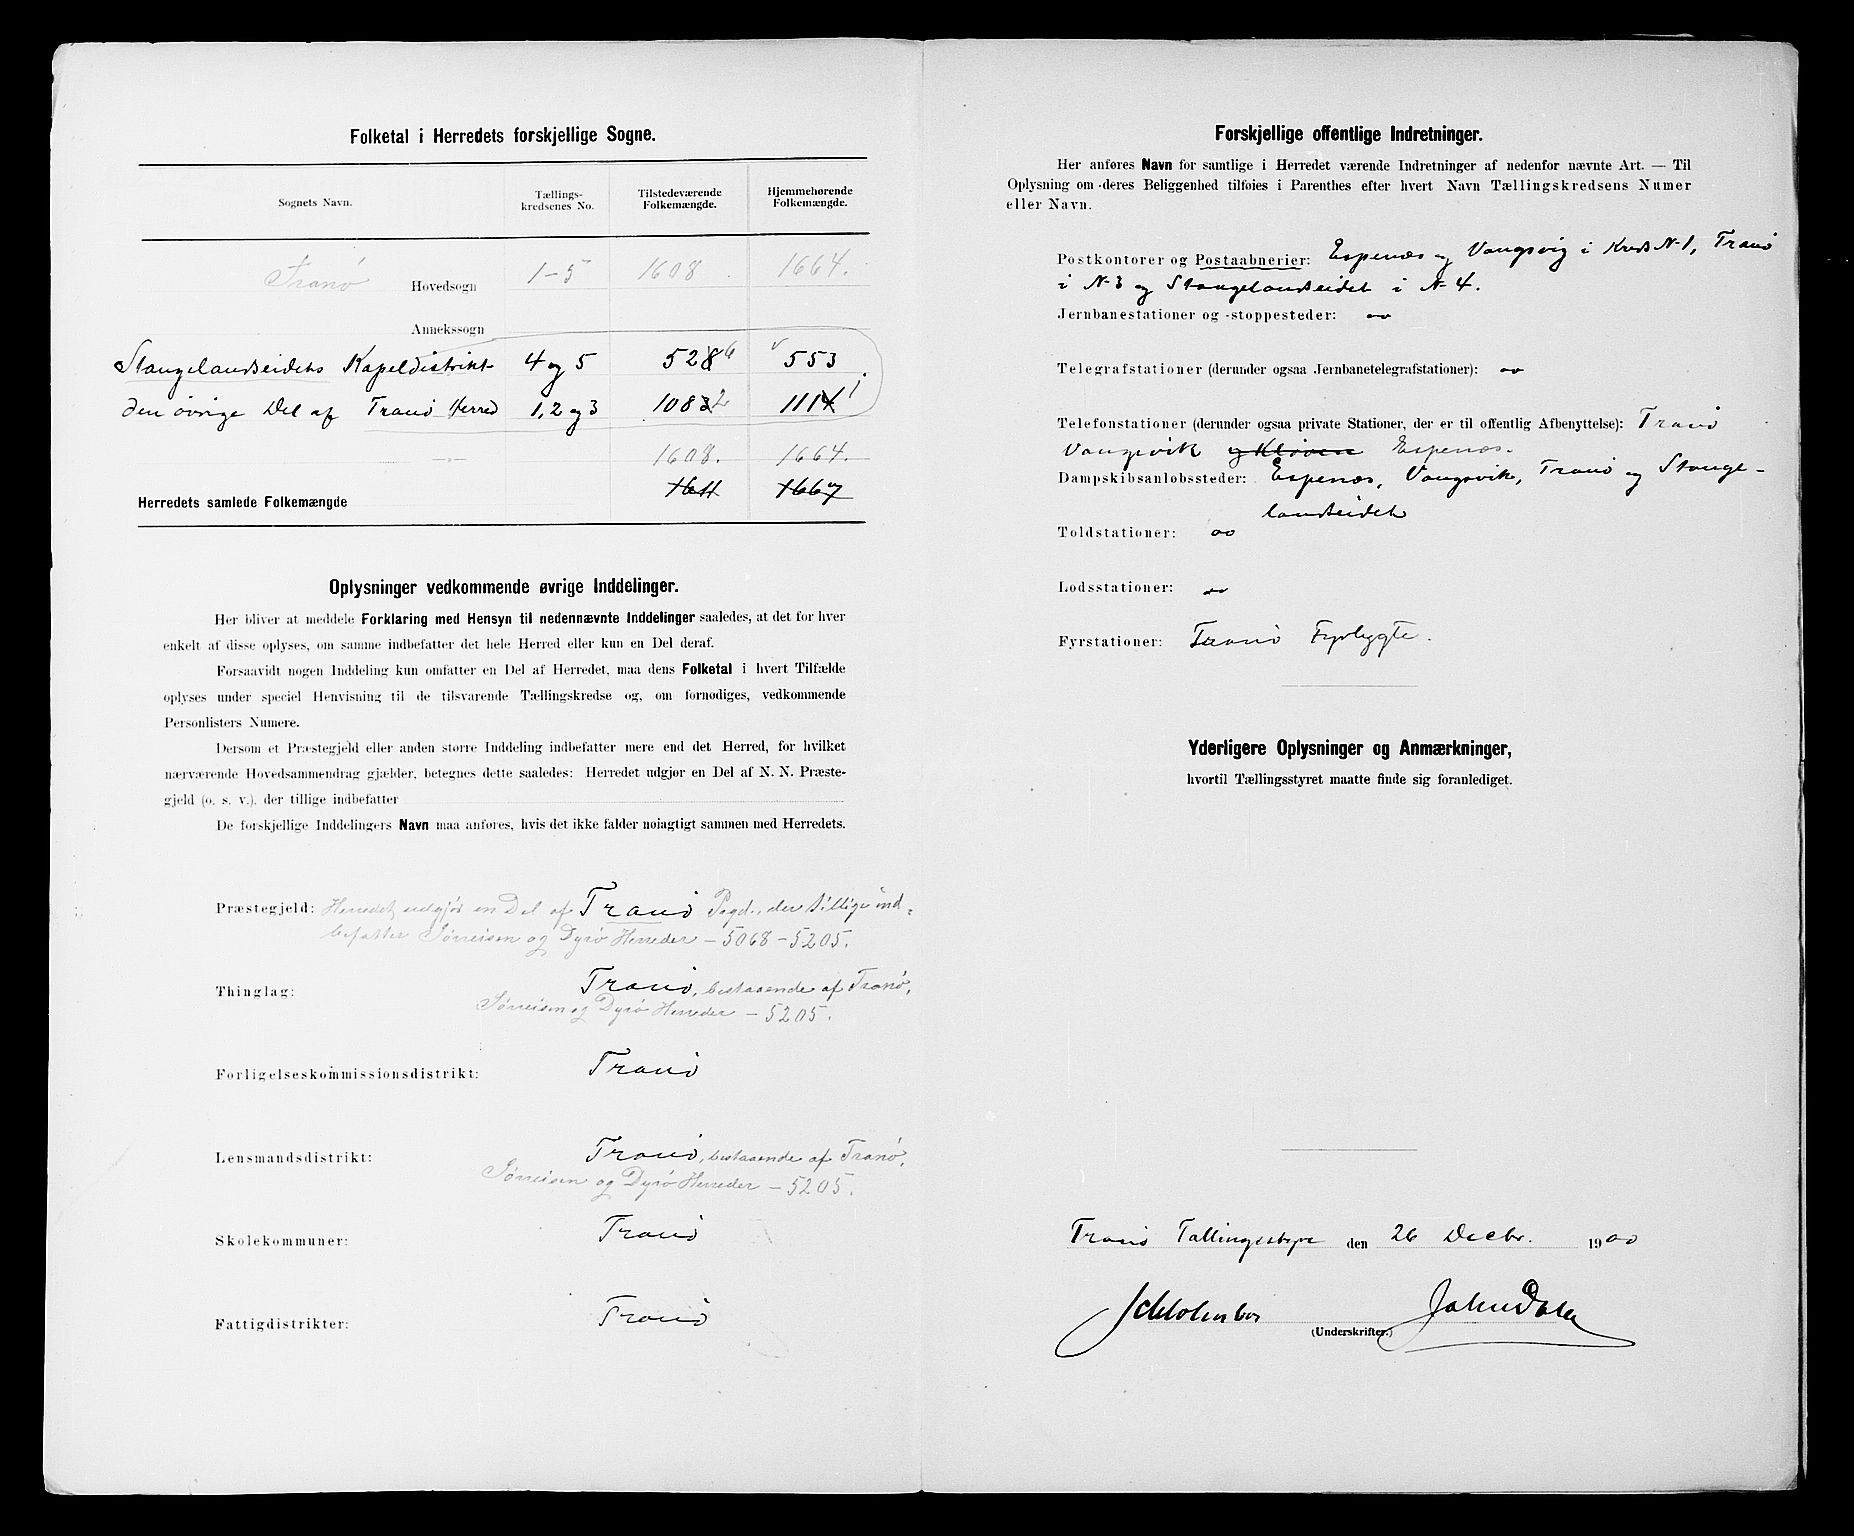 Folketal i Herredets forskjellige Sogne.
Sognets Navn. Tællings-kredsenes No. Tilstedeværende Folkemængde. Hjemmehørende Folkemængde.
Tranø Hovedsogn 1-5 1608 1664.
Annekssogn
Stangelandseidets Kapeldistrikt 4 og 5 5286 553
den øvrige Del af Tranø Herred 1, 2 og 3 10832 11141
-"- 1608. 1664.
Herredets samlede Folkemængde 1611 1667
Oplysninger vedkommende øvrige Inddelinger.
Her bliver at meddele Forklaring med Hensyn til nedennævnte Inddelinger saaledes, at det for hver
enkelt af disse oplyses, om samme indbefatter det hele Herred eller kun en Del deraf.
Forsaavidt nogen Inddeling kun omfatter en Del af Herredet, maa dens Folketal i hvert Tilfælde
oplyses under speciel Henvisning til de tilsvarende Tællingskredse og, om fornødiges, vedkommende
Personlisters Numere.
Dersom et Præstegjeld eller anden større Inddeling indbefatter mere end det Herred, for hvilket
nærværende Hovedsammendrag gjælder, betegnes dette saaledes: Herredet udgjør en Del af N. N. Præste-
gjeld (o. s. v.), der tillige indbefatter
De forskjellige Inddelingers Navn maa anføres, hvis det ikke falder nøiagtigt sammen med Herredets.
Præstegjeld: Herredet udgjør en Del af Tranø Pgd., der tillige ind-
befatter Sørreisen og Dyrø Herreder - 5068 - 5205.
Thinglag: Tranø, bestaaende af Tranø,
Sørreisen og Dyrø Herreder - 5205.
Forligelseskommissionsdistrikt: Tranø
Lensmandsdistrikt: Tranø, bestaaende af Tranø,
Sørreisen og Dyrø Herreder - 5205.
Skolekommuner: Tranø
Fattigdistrikter: Tranø
Forskjellige offentlige Indretninger.
Her anføres Navn for samtlige i Herredet værende Indretninger af nedenfor nævnte Art. — Til
Oplysning om deres Beliggenhed tilføies i Parenthes efter hvert Navn Tællingskredsens Numer
eller Navn.
Postkontorer og Postaabnerier: Espenæs og Vangsvig i Kreds N-1, Tranø
i N-3 og Stangelandseidet i N-4.
Jernbanestationer og -stoppesteder: oo
Telegrafstationer (derunder ogsaa Jernbanetelegrafstationer): oo
Telefonstationer (derunder ogsaa private Stationer, der er til offentlig Afbenyttelse): Tranø
Vangsvik og Kløven Espenæs.
Dampskibsanløbssteder: Espenæs, Vangsvik, Tranø og Stange-
landseidet
Toldstationer: oo
Lodsstationer: oo
Fyrstationer: Tranø Fyrlygte.
Yderligere Oplysninger og Anmærkninger,
hvortil Tællingsstyret maatte finde sig foranlediget.
Tranø Tællingsstyre den 26 Decbr. 1900
John Dale
(Underskrifter.)